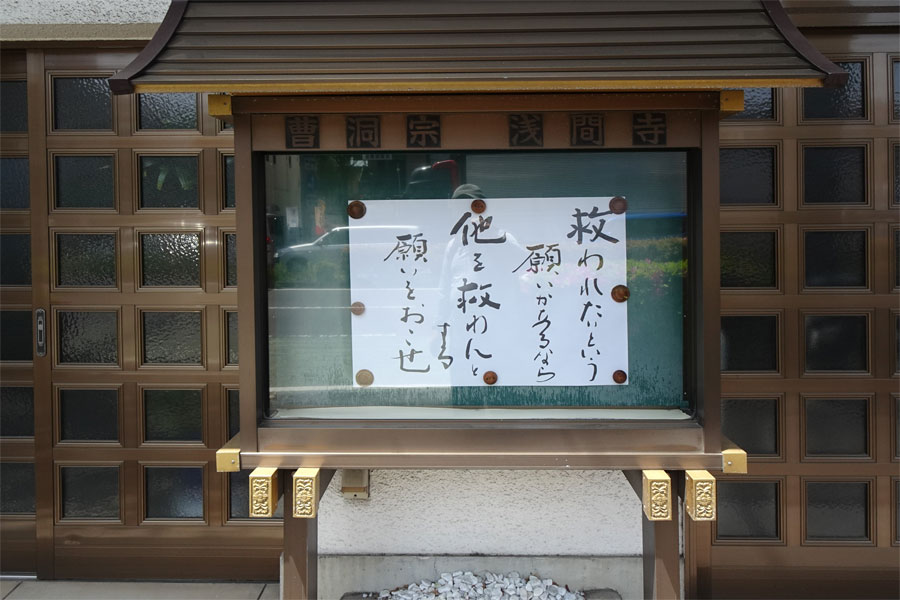 曹洞宗 浅間寺
救われたいという
願いがあるなら
他を救わんと
する
願いをおこせ